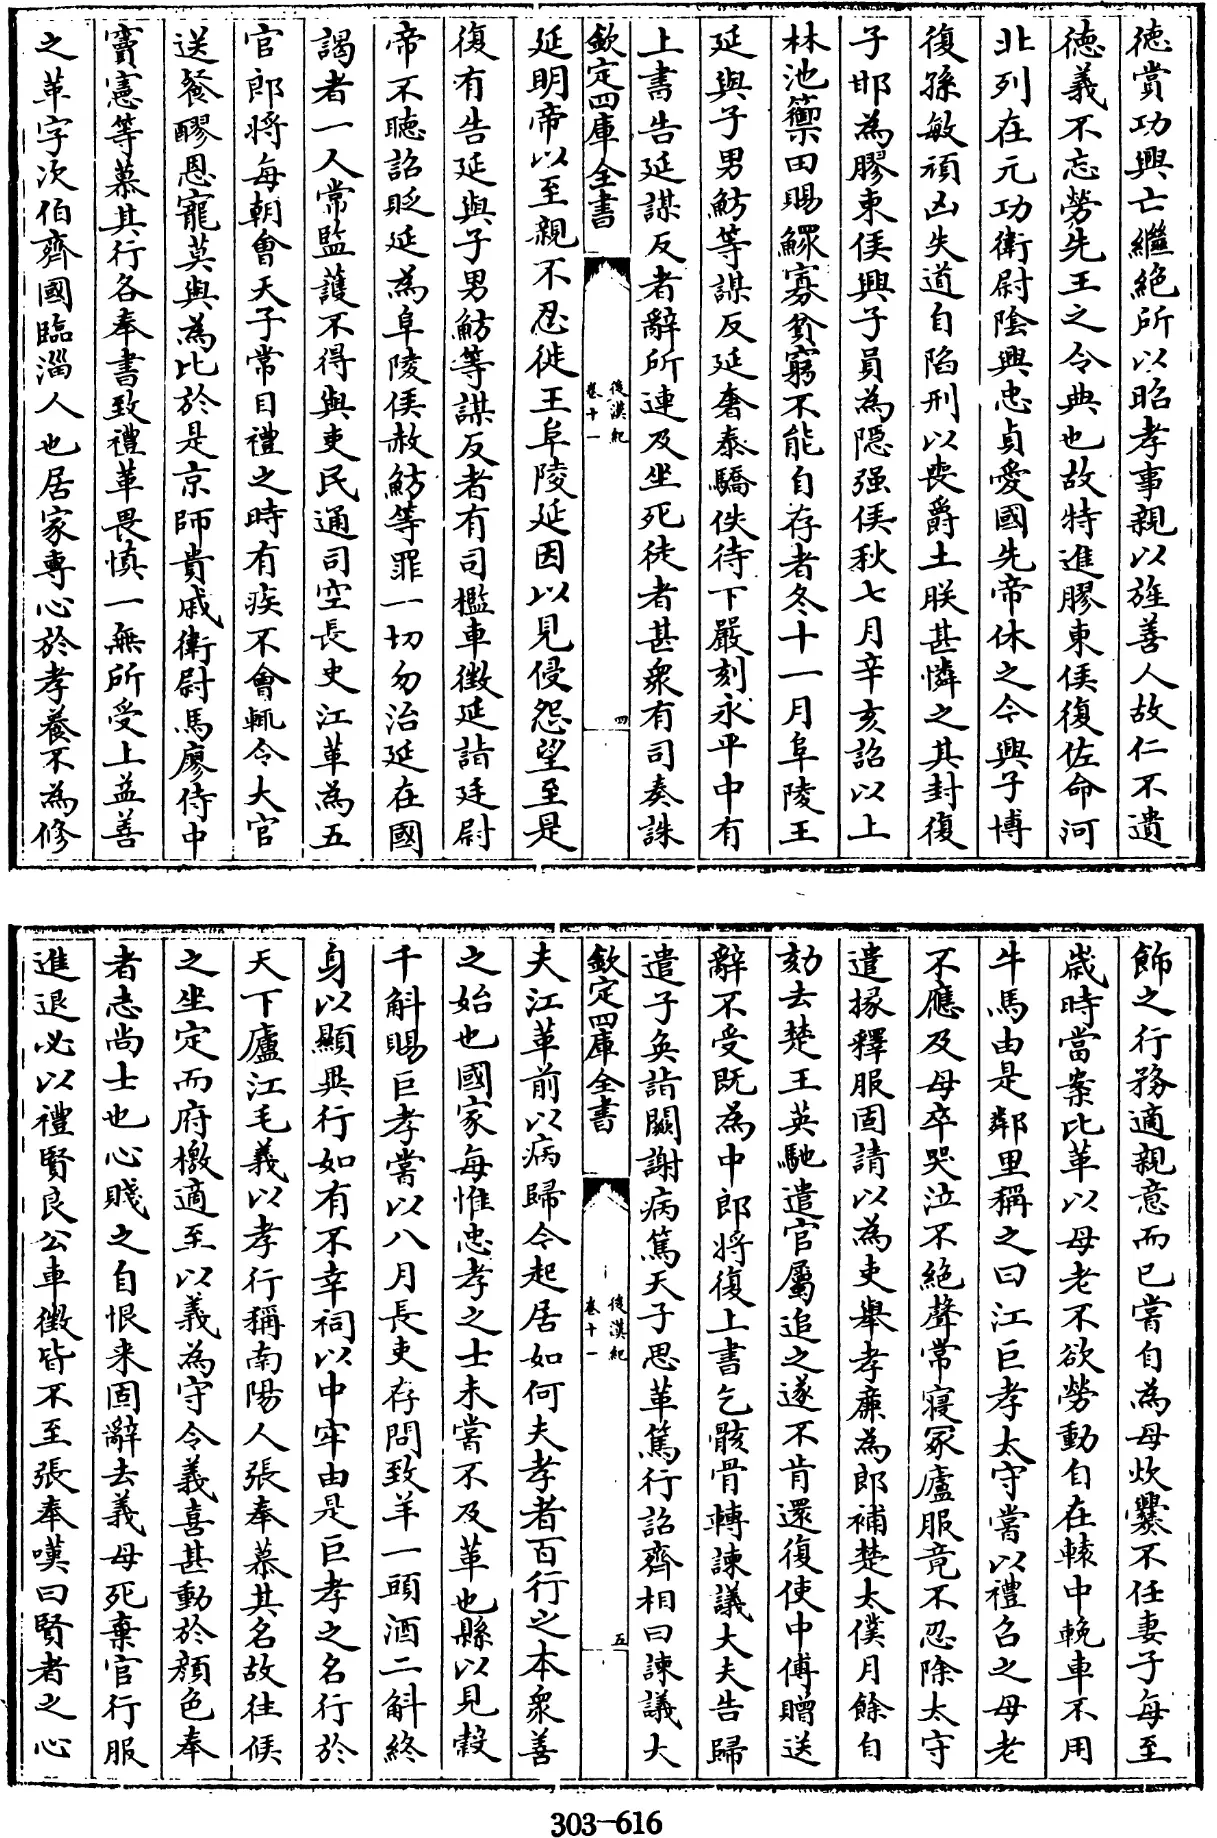 徳賞功興亡繼絶所以昭孝事親以旌善人故仁不遺
徳義不忘勞先王之令典也故特進膠東侯復佐命河
北列在元功衛尉隂興忠貞愛國先帝休之今興子博
復孫敏頑凶失道自陷刑以喪爵土朕甚憐之其封復
子邯為膠東侯興子員為隠强侯秋七月辛亥詔以上
林池籞田賜鰥寡貧窮不能自存者冬十一月阜陵王
延與子男魴等謀反延奢泰驕佚待下嚴刻永平中有
上書告延謀反者辭所連及坐死徙者甚衆有司奏誅
欽定四庫全書
後漢紀
卷十一
四
延明帝以至親不忍徙王阜陵延因以見侵怨望至是
復有告延與子男魴等謀反者有司檻車徴延詣廷尉
帝不聽詔貶延為阜陵侯赦魴等罪一切勿治延在國
謁者一人常監護不得與吏民通司空長史江革為五
官郎將每朝會天子常目禮之時有疾不會輒令大官
送餐醪恩寵莫與為比於是京師貴戚衛尉馬廖侍中
竇憲等慕其行各奉書致禮革畏慎一無所受上益善
之革字次伯齊國臨淄人也居家專心於孝養不為修
飾之行務適親意而已嘗自為母炊爨不任妻子每至
歳時當案比革以母老不欲勞動自在轅中輓車不用
牛馬由是鄰里稱之曰江巨孝太守嘗以禮召之母老
不應及母卒哭泣不絶聲常寢冢廬服竟不忍除太守
遣掾釋服固請以為吏舉孝廉為郎補楚太僕月餘自
劾去楚王英馳遣官屬追之遂不肯還復使中傅贈送
辭不受既為中郎將復上書乞骸骨轉諫議大夫告歸
遣子奐詣闕謝病篤天子思革篤行詔齊相曰諫議大
欽定四庫全書
後漢紀
卷十一
五
夫江革前以病歸今起居如何夫孝者百行之本衆善
之始也國家每惟忠孝之士未嘗不及革也縣以見穀
千斛賜巨孝嘗以八月長吏存問致羊一頭酒二斛終
身以顯異行如有不幸祠以中牢由是巨孝之名行於
天下廬江毛義以孝行稱南陽人張奉慕其名故往候
之坐定而府檄適至以義為守令義喜甚動於顔色奉
者志尚士也心賤之自恨来固辭去義母死棄官行服
進退必以禮賢良公車徴皆不至張奉嘆曰賢者之心
303-616